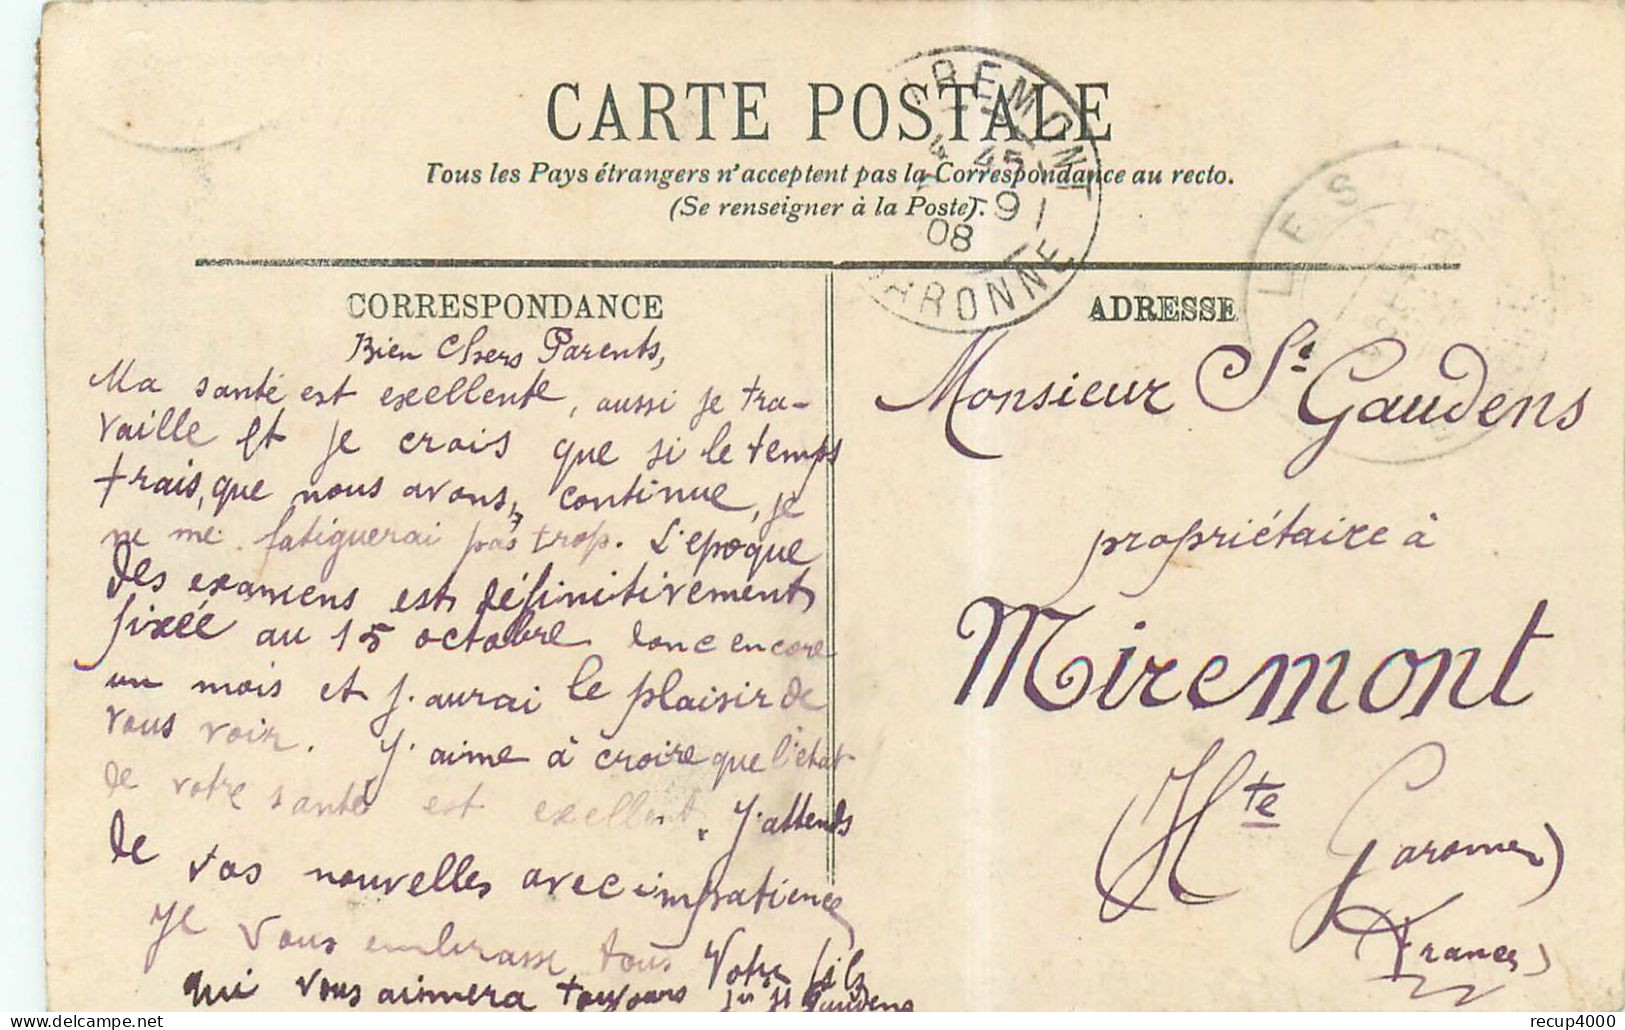 CARTE POSTALE
Tous les Pays étrangers n'acceptent pas la Correspondance au recto.
(Se renseigner à la Poste).
IREMONT
4 45
9
08
ARONNE
LES
CORRESPONDANCE
Bien Chers Parents,
Ma santé est excellente, aussi je tra-
vaille et je crois que si le temps
frais, que nous avons, continue, je
ne me fatiguerai pas trop. L'epoque
des examens est définitivement
fixée au 15 octobre donc encore
un mois et j'aurai le plaisir de
vous voir. J'aime à croire que l'état
de votre santé est exellent. J'attends
de vos nouvelles avec impatience
Je vous embrasse tous Votre fils
qui vous aimera toujours St Gaudens
ADRESSE
Monsieur St Gaudens
propriétaire à
Miremont
(Hte Garonne)
(France)
delcampe.net
recup4000